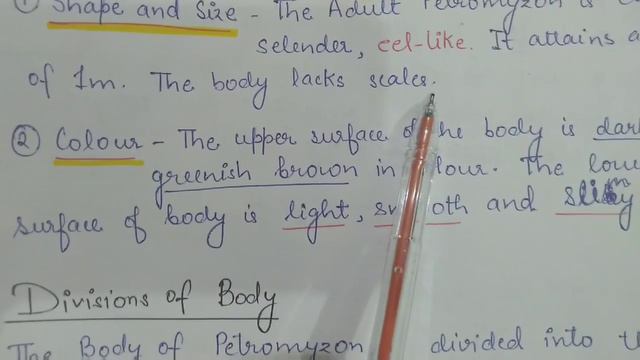 ① Shape and Size - The Adult Petromyzon is
selender, eel-like. It attains a
of 1m. The body lacks scales.
② Colour - The upper surface of the body is dark
greenish brown in colour. The low
surface of body is light, smooth and slimy
Divisions of Body
The Body of Petromyzon divided into